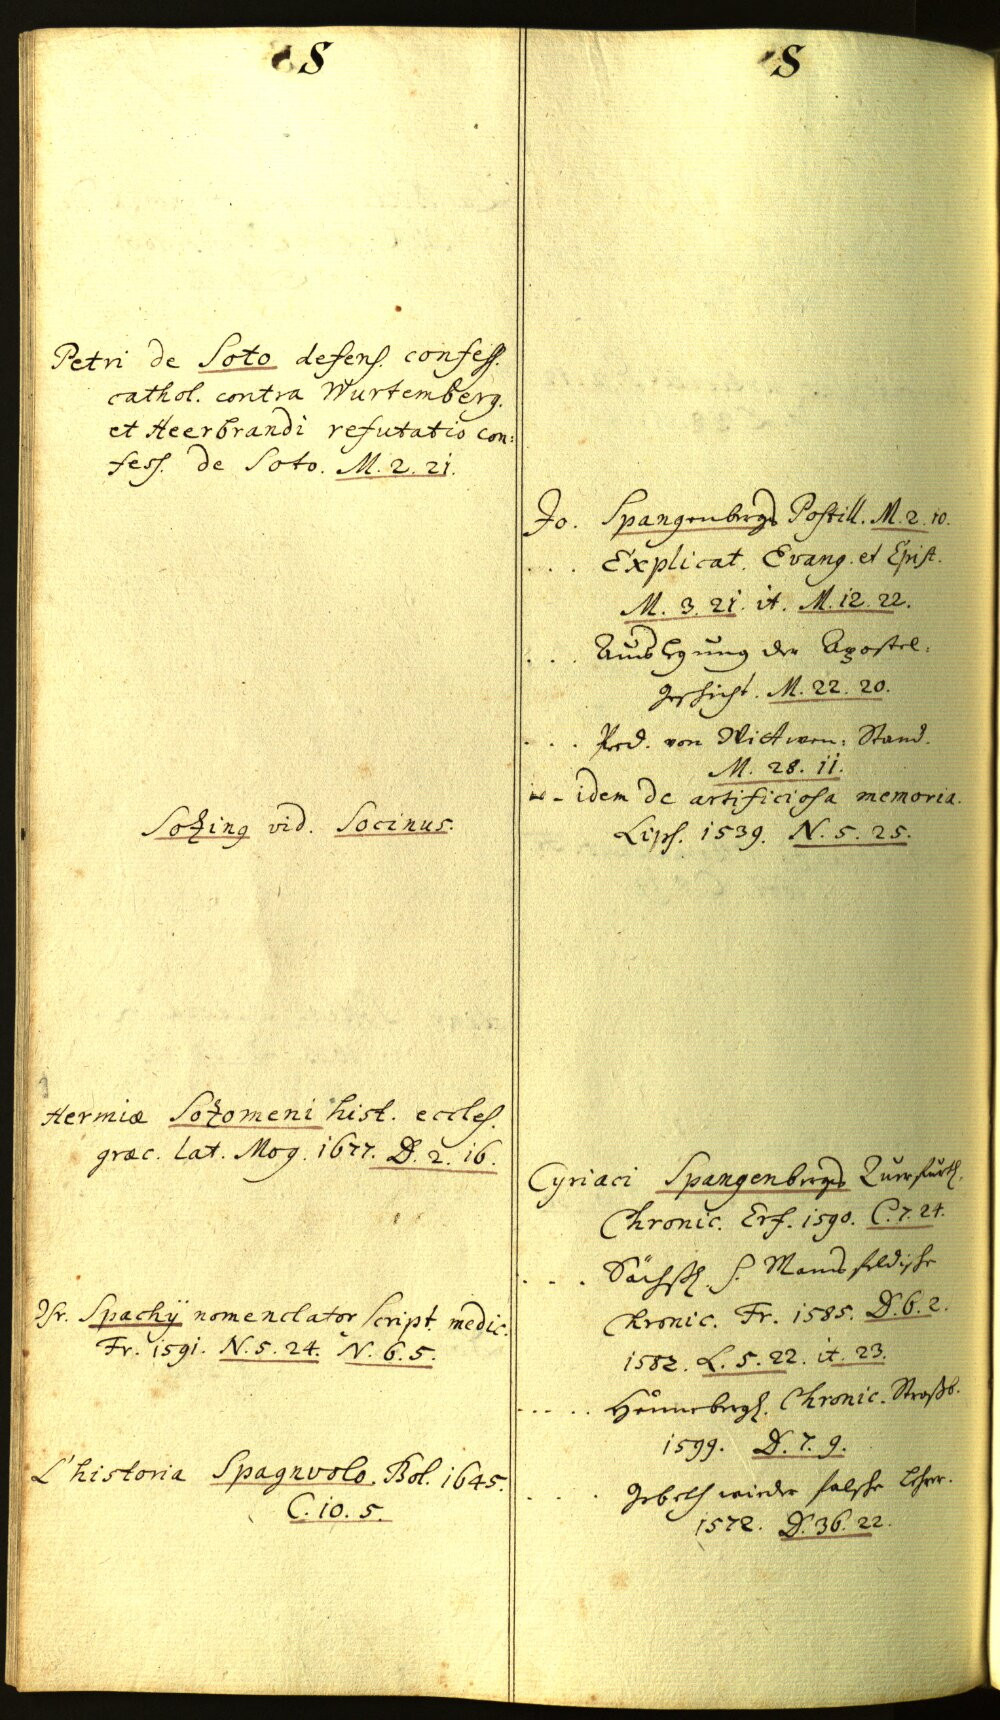 S
Petri de Soto defens. confess.
cathol. contra Wurtemberg.
et Heerbrandi refutatio con:
fess. de Soto. M. 2. 21.
Sotzing vid. Socinus.
Hermiæ Sozomeni hist. eccles.
græc. lat. Mog. 1677. D. 2. 16.
Isr. Spachij nomenclator Script. medic.
Fr. 1591. N. 5. 24. N. 6. 5.
L'historia Spagnvolo. Bol. 1645.
C. 10. 5.
S
Jo. Spangenbergs Postill. M. 2. 10.
. . . Explicat. Evang. et Epist.
M. 3. 21. it. M. 12. 22.
. . . Auslegung der Apostel:
Geschicht. M. 22. 20.
. . . Pred. von Wittwen: Stand.
M. 28. 11.
idem de artificiosa memoria.
Lips. 1539. N. 5. 25.
Cyriaci Spangenbergs Querfurth.
Chronic. Erf. 1590. C. 7. 24.
. . . Sächß. s. Mansfeldische
Chronic. Fr. 1585. D. 6. 2.
1582. L. 5. 22. it. 23.
. . . . . Hennebergs. Chronic. Straßb.
1599. D. 7. 9.
. . . Gebeth wieder falsche Lehrer.
1572. D. 36. 22.